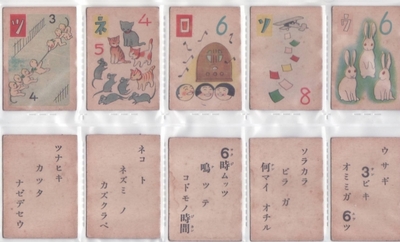 ツ 3
4
ネ 4
5
ロ 6
ソ
8
ウ 6
ツナヒキ
カツタ
ナゼデセウ
ネコ ト
ネズミ ノ
カズクラベ
6時ムッツ
鳴ツテ
コドモノ時間
ソラカラ
ビラ ガ
何マイ オチル
ウサギ
3ビキ
オミミガ 6ツ